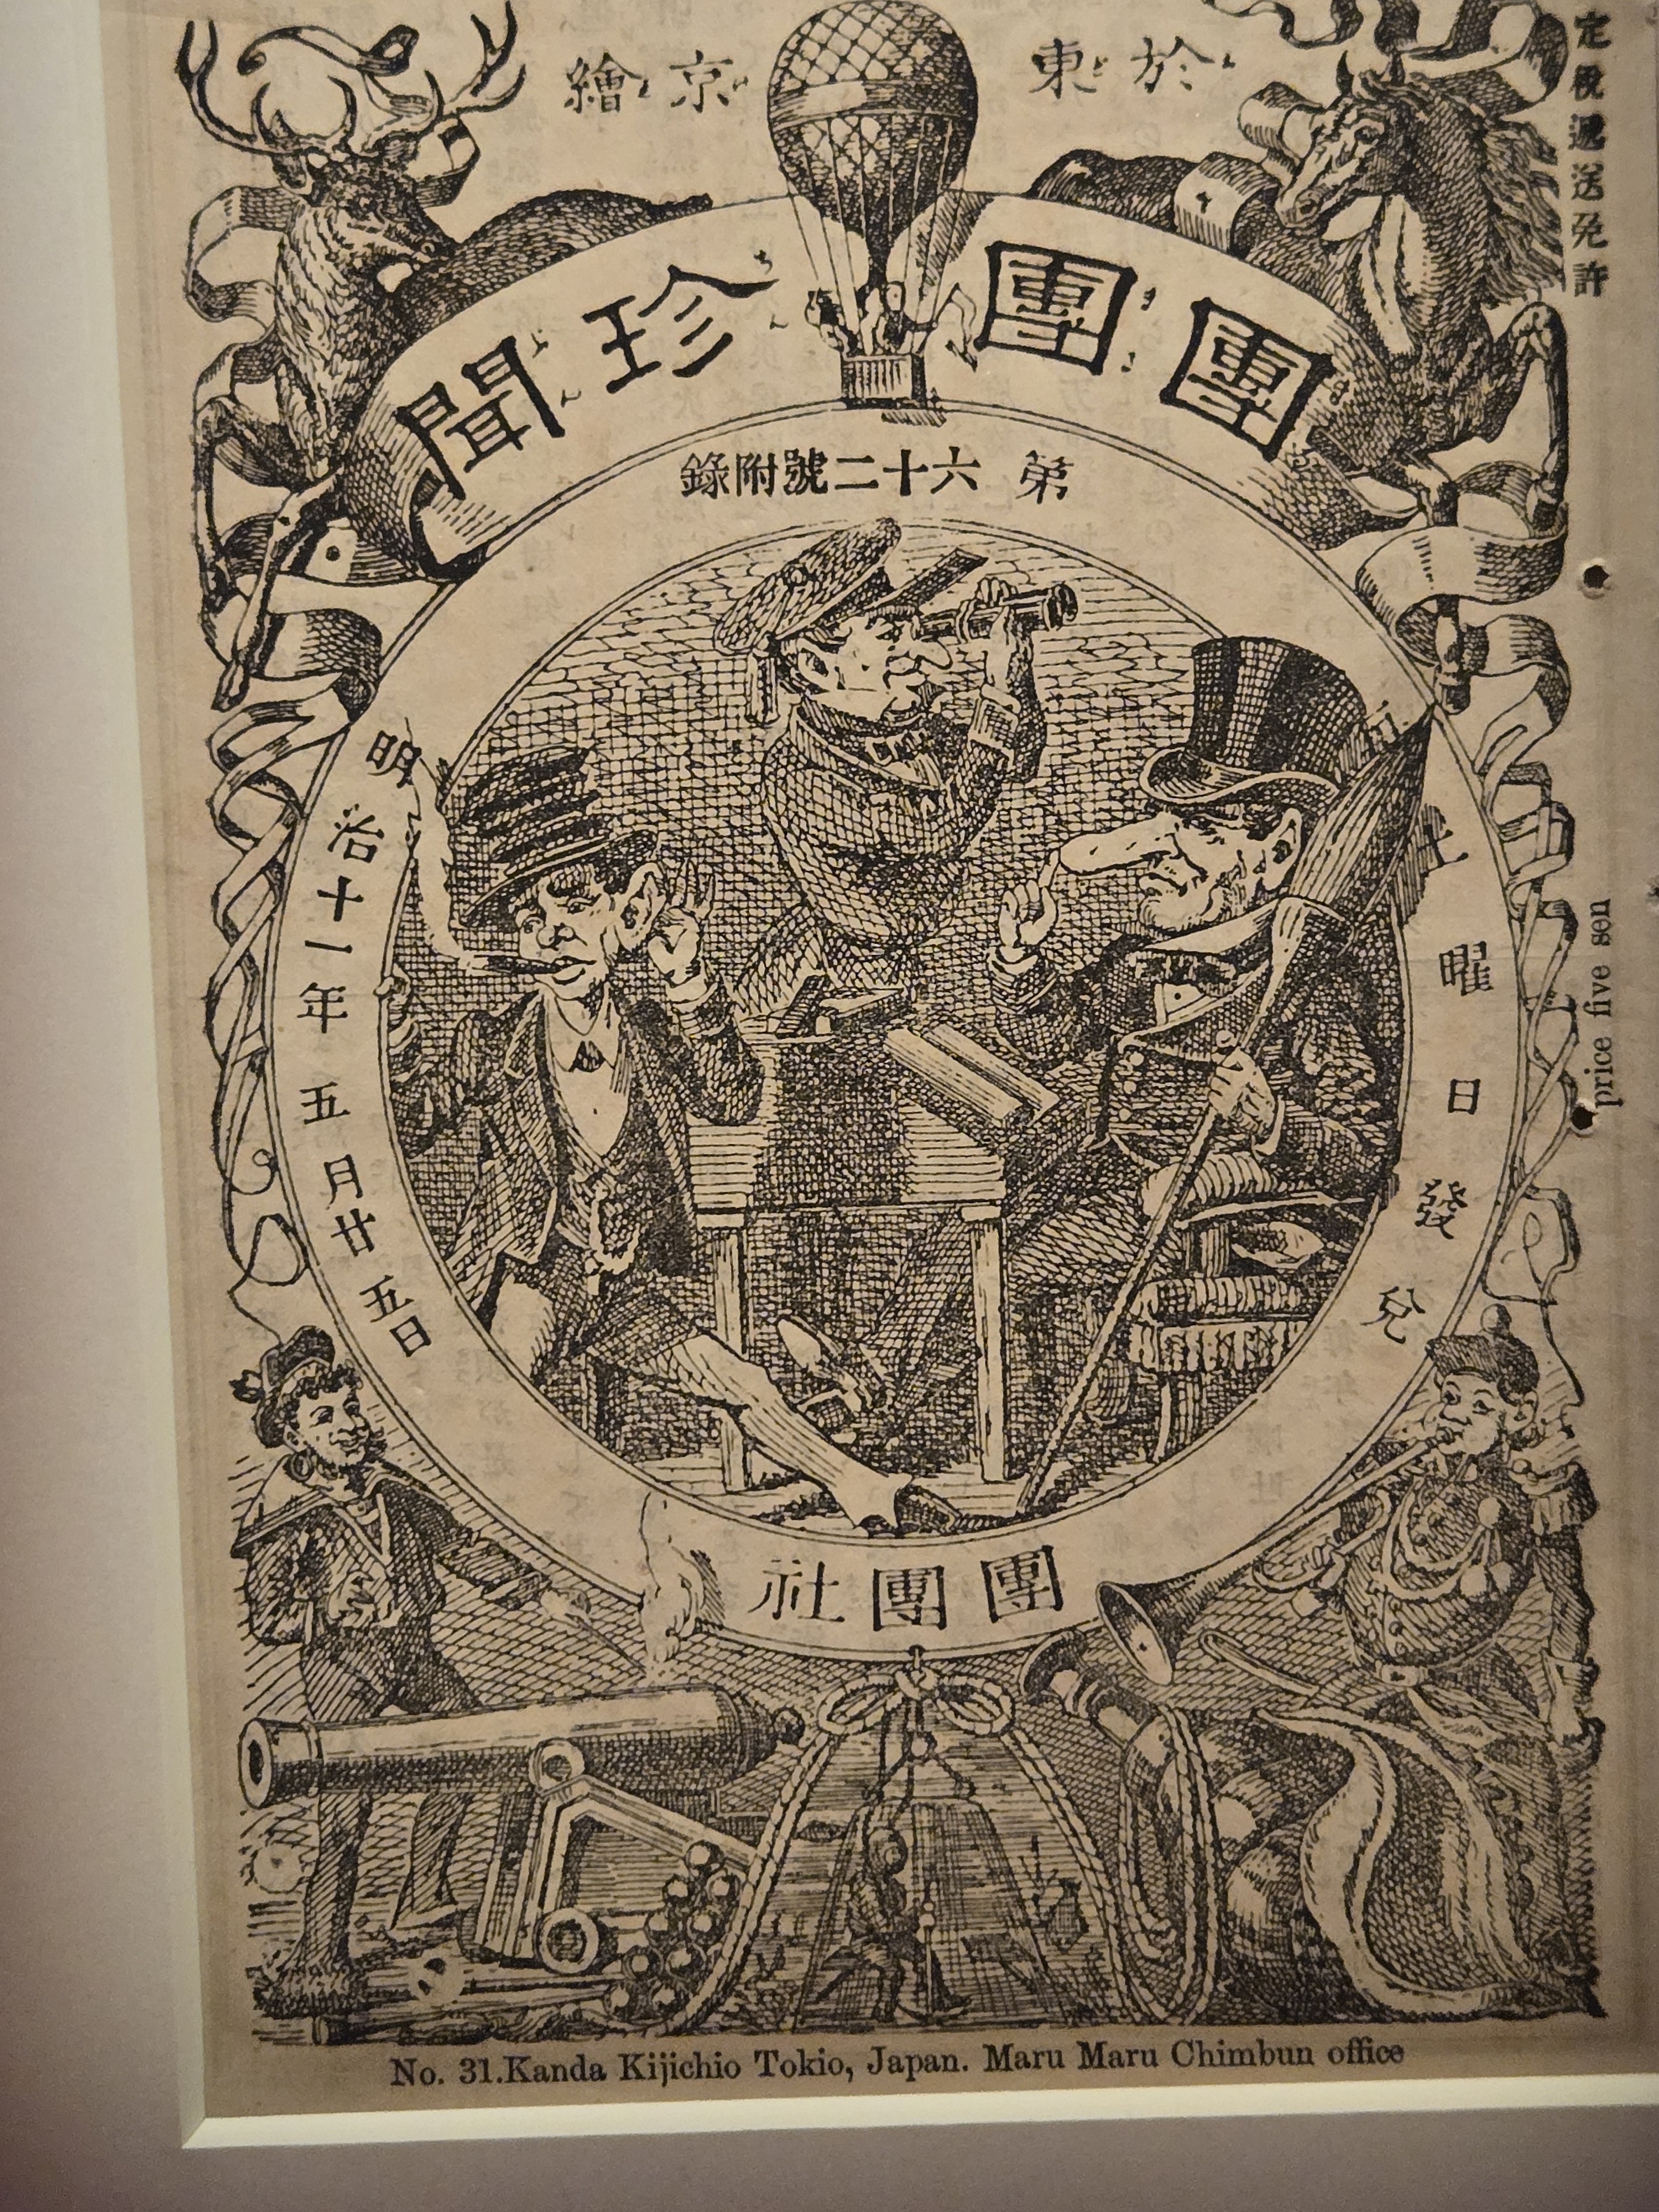 定稅遞送免許
於東京繪
團團珍聞
第六十二號附錄
土曜日發兌
明治十一年五月廿五日
團團社
price five sen
No. 31.Kanda Kijichio Tokio, Japan. Maru Maru Chimbun office